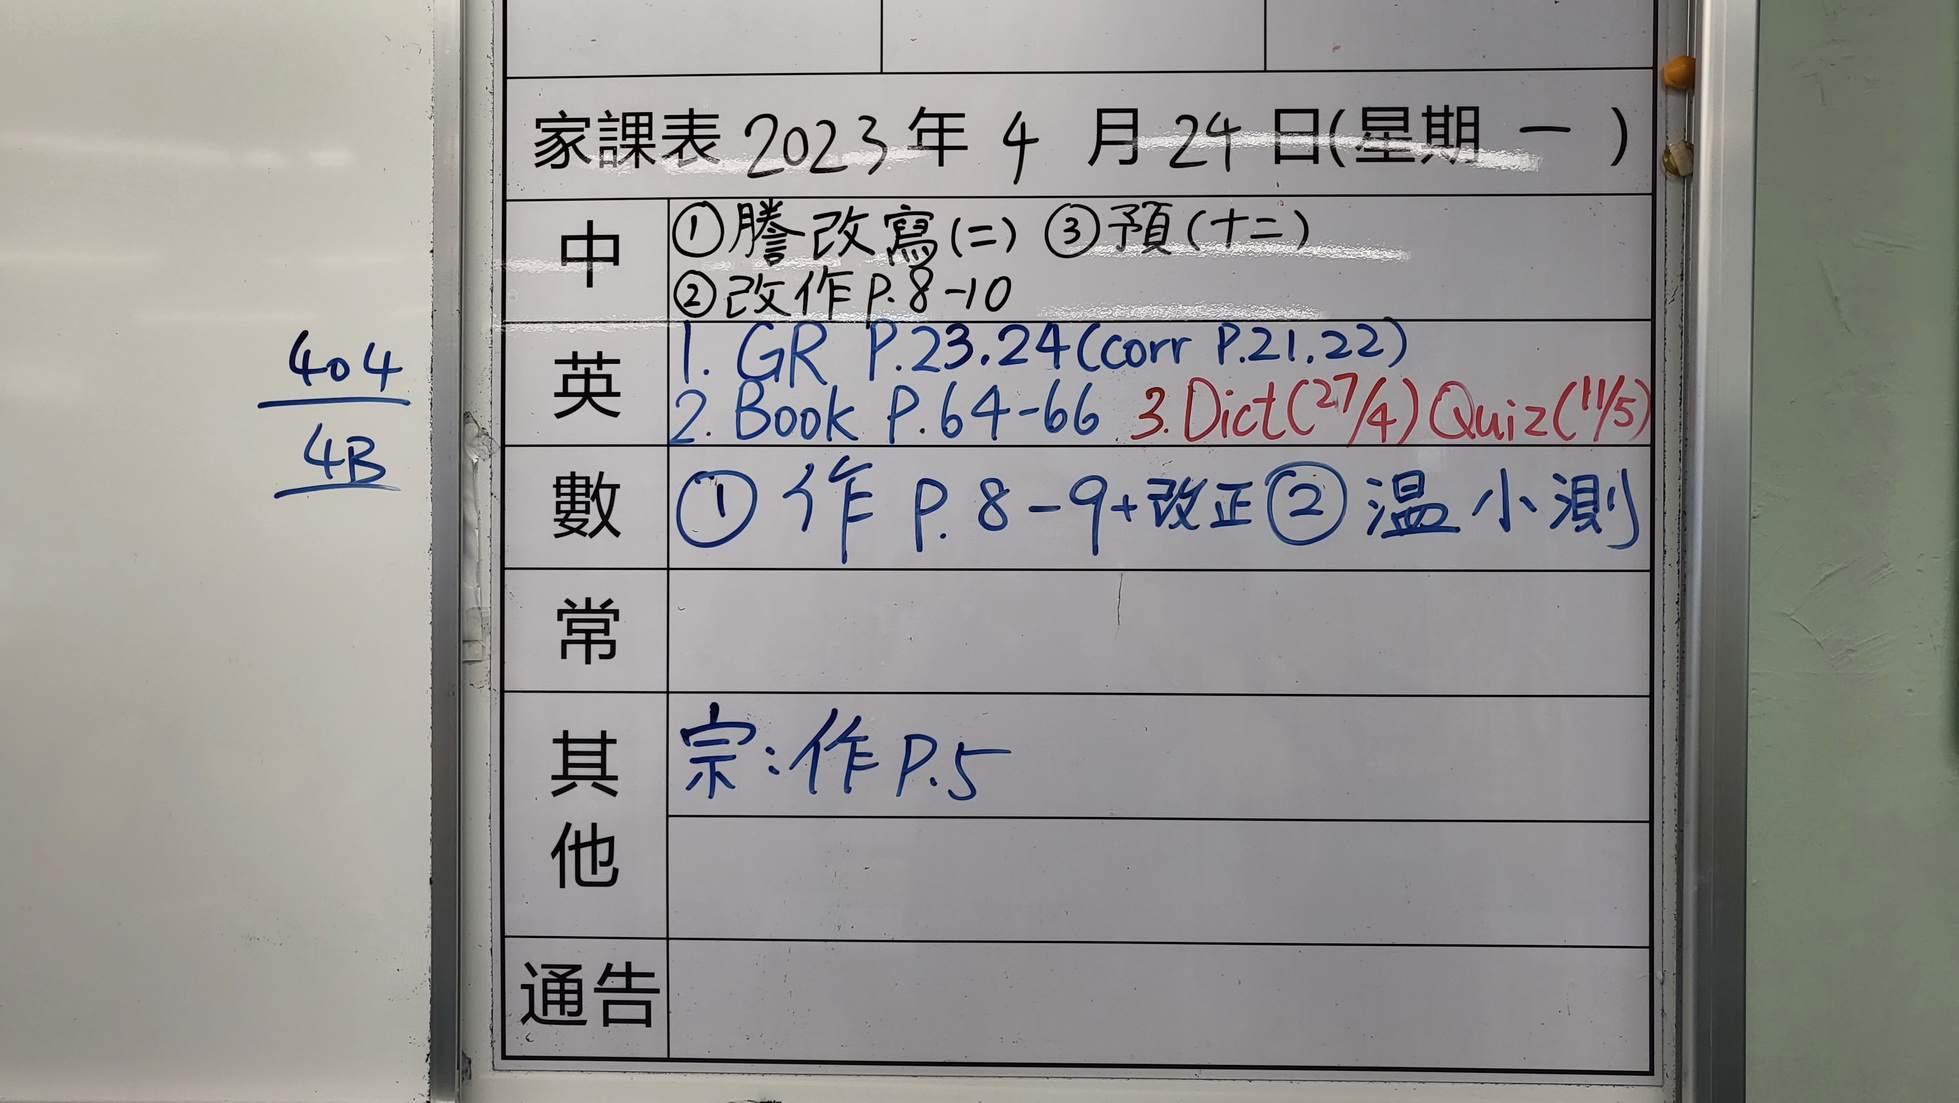 家課表 2023 年 4 月 24 日(星期 一 )
中
①謄改寫(二) ③預(十二)
②改作P.8-10
英
1. GR P.23.24(corr P.21.22)
2. Book P.64-66 3.Dict(27/4) Quiz(11/5)
數
① 作 P. 8-9+改正② 温小測
常
其他
宗:作 P.5
通告
404
4B